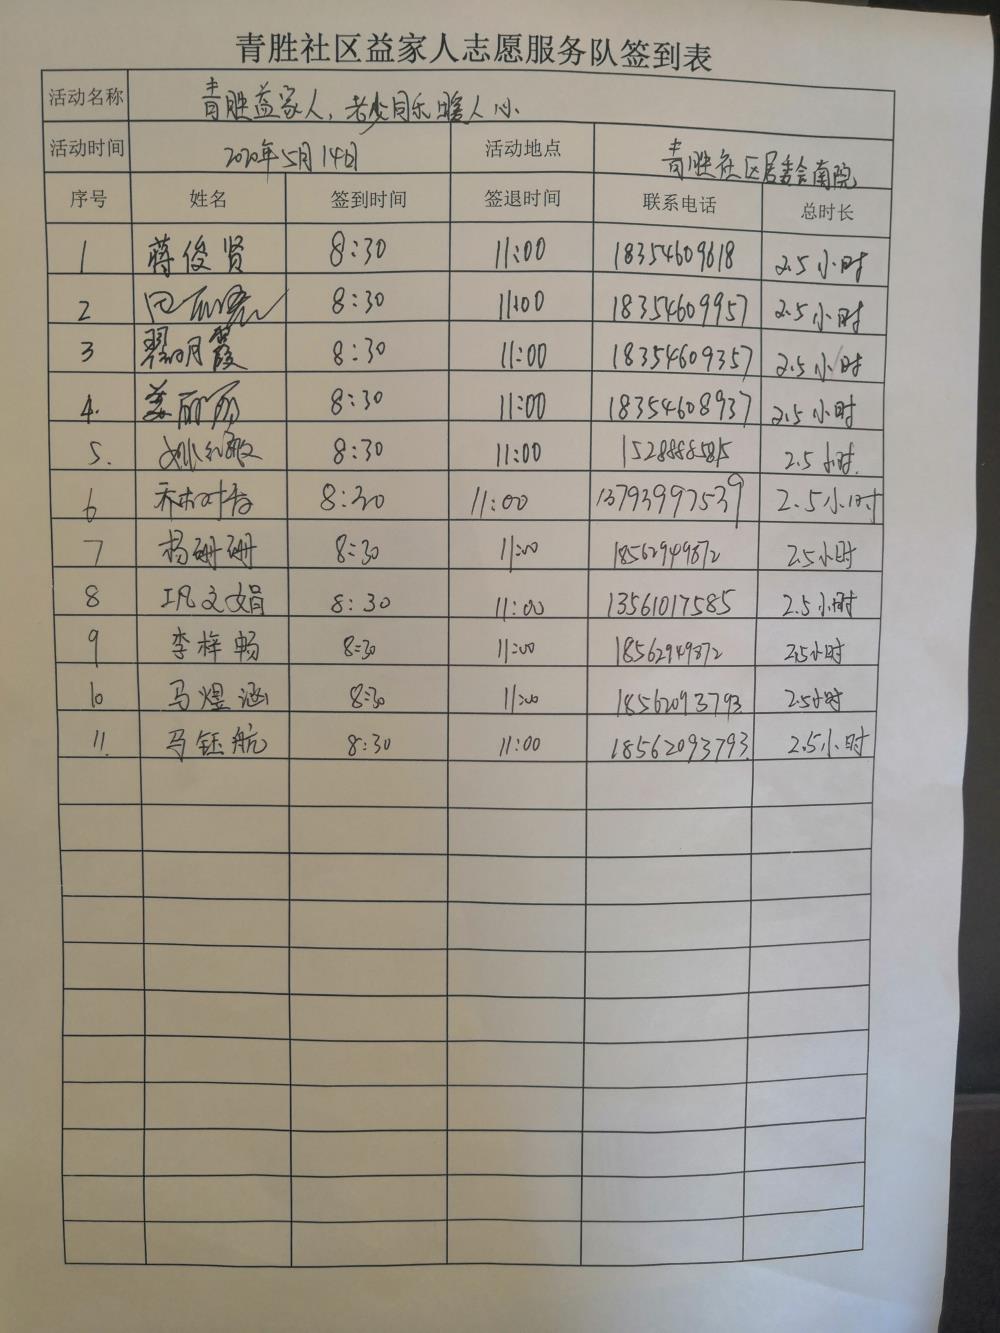 青胜社区益家人志愿服务队签到表
活动名称 青胜益家人,老少同乐暖人心
活动时间 2020年5月14日 活动地点 青胜社区居委会南院
序号 姓名 签到时间 签退时间 联系电话 总时长
1 蒋俊贤 8:30 11:00 18354609618 2.5小时
2 8:30 11:00 18354609957 2.5小时
3 翟明霞 8:30 11:00 18354609357 2.5小时
4. 姜丽丽 8:30 11:00 18354608937 2.5小时
5. 姚红敏 8:30 11:00 2.5小时.
6 乔树春 8:30 11:00 13793997539 2.5小时
7 杨珊珊 8:30 11:00 18562949872 2.5小时
8 巩文娟 8:30 11:00 13561017585 2.5小时
9 李梓畅 8:30 11:00 18562949872 2.5小时
10 马煜涵 8:30 11:00 18562093793 2.5小时
11. 马钰航 8:30 11:00 18562093793. 2.5小时